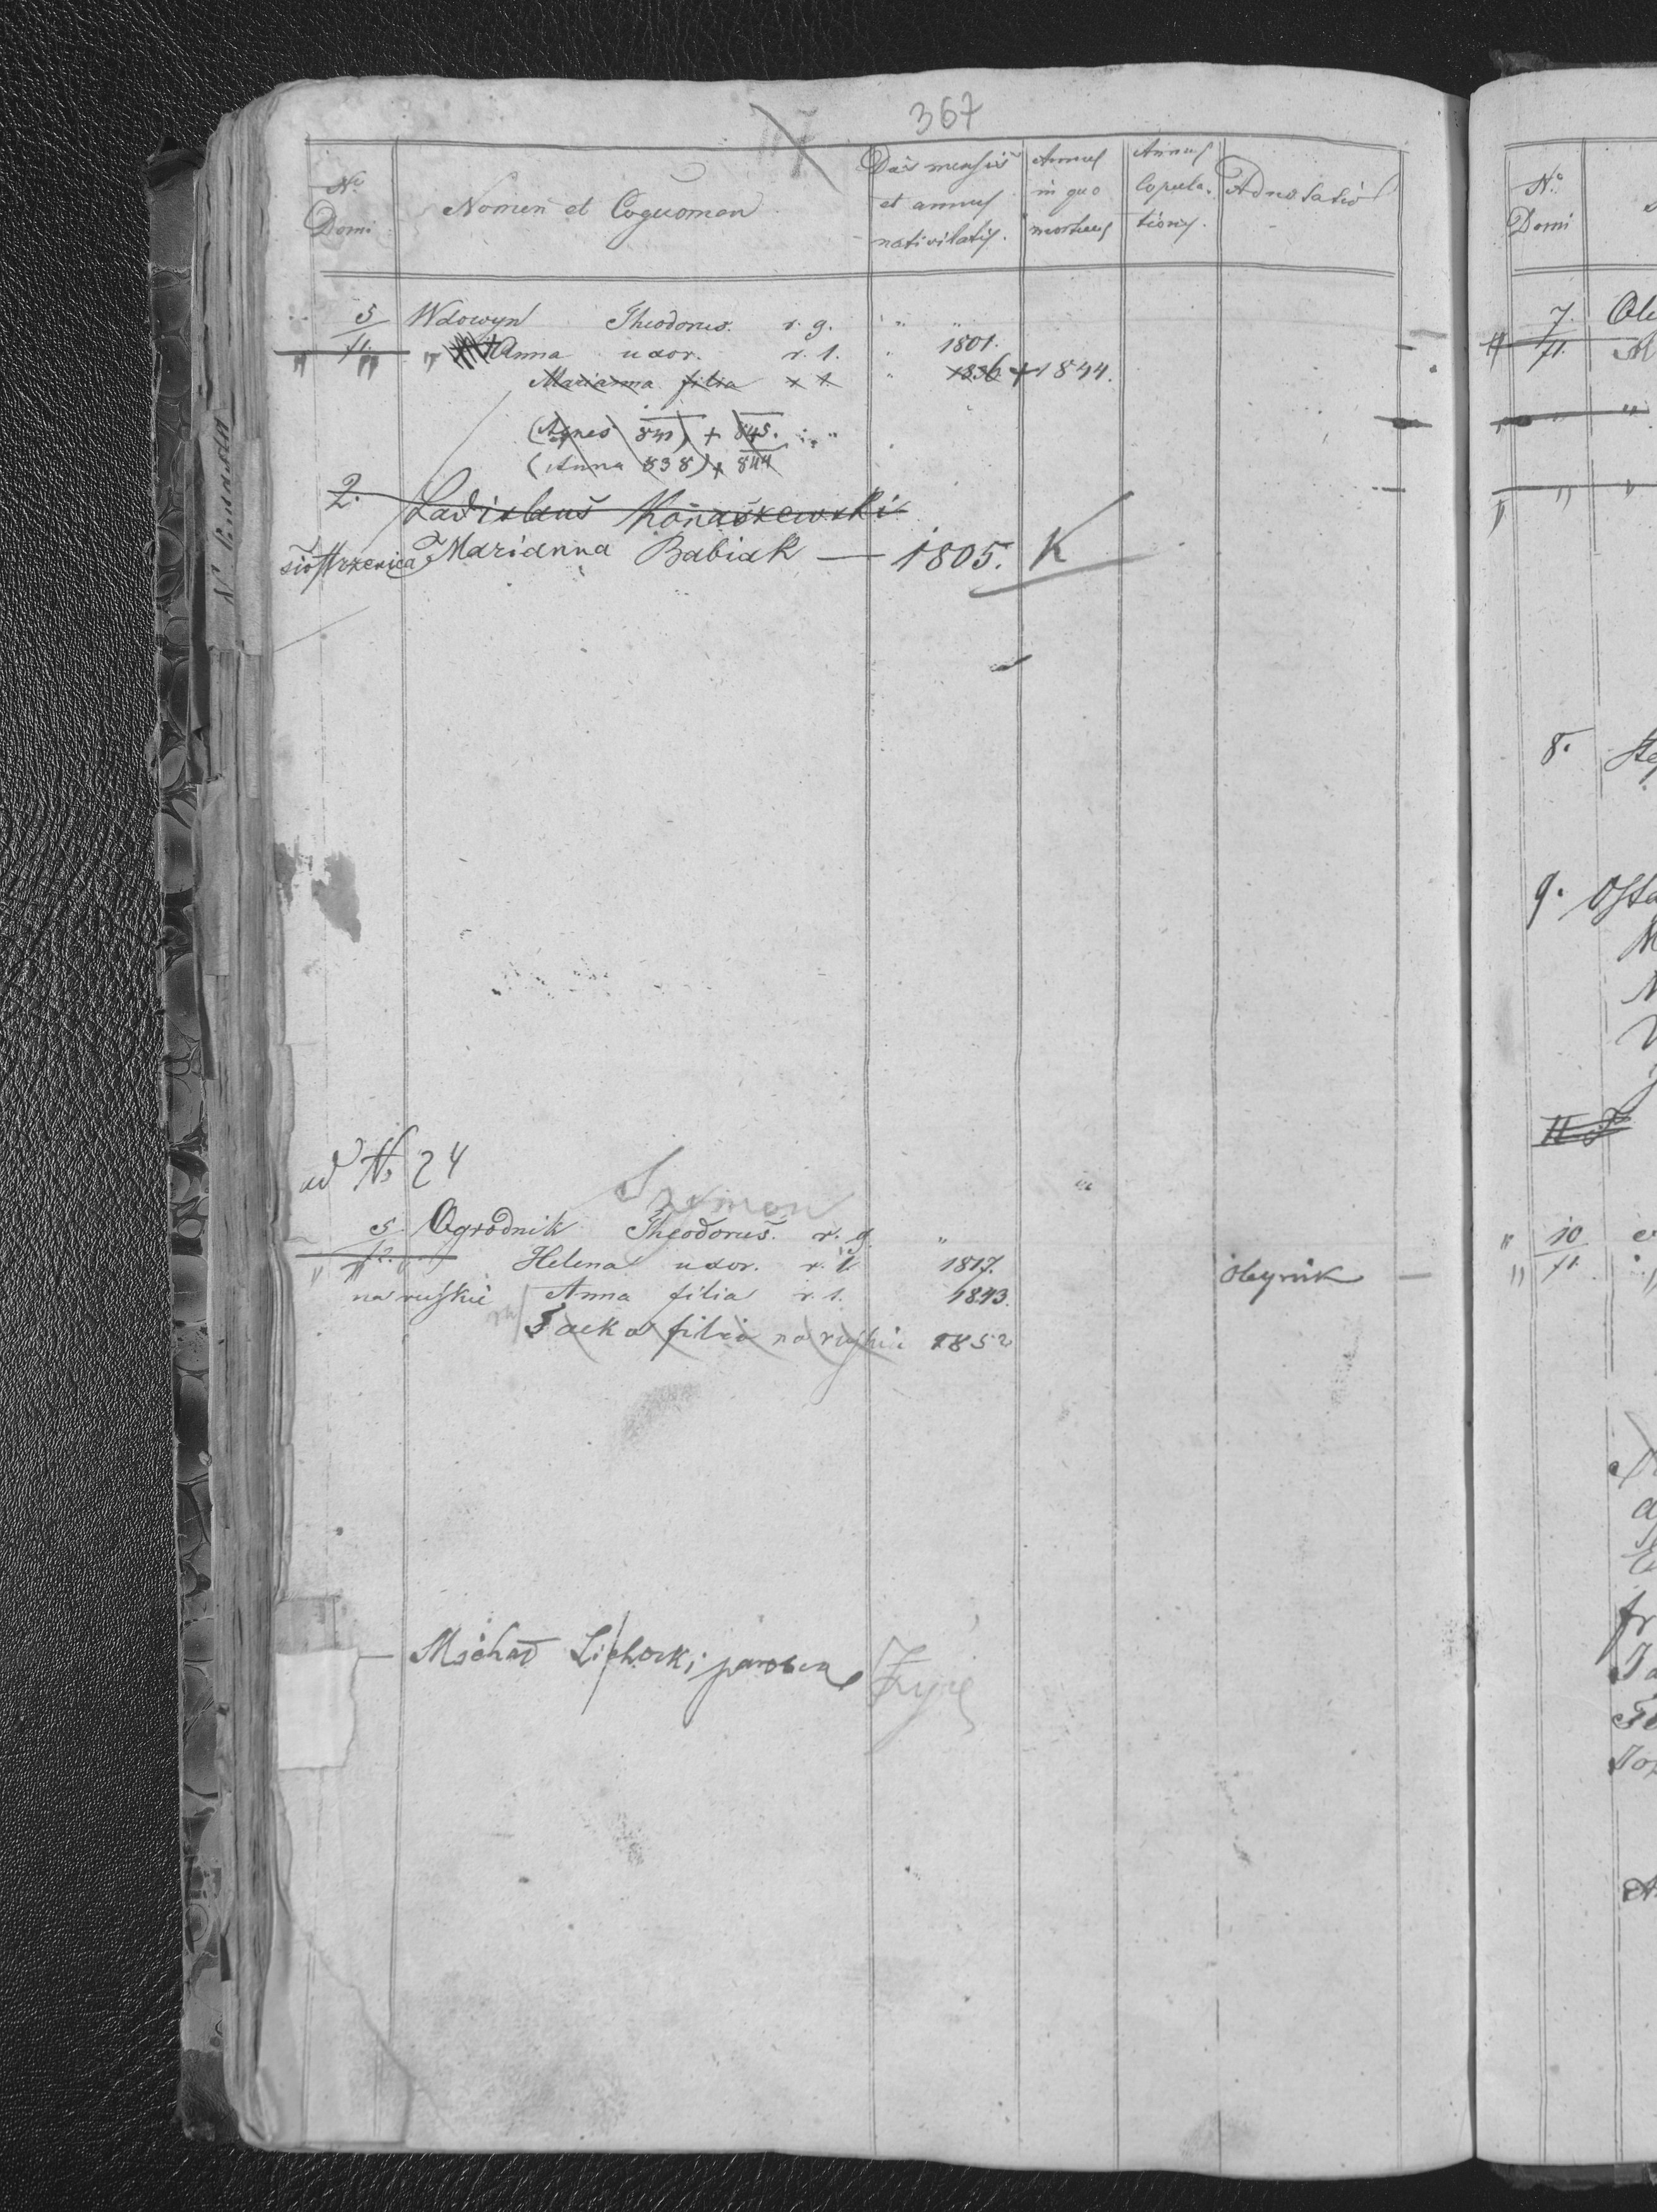 367
No Domi | Nomen et Cognomen | Dies mensis et annus nativitatis. | Annus in quo mortuus | Annus Copulationis. | Adnotatio
5 Wdowyn Theodorus. r. g. " "
" fl. " Anna uxor. r. l. " 1801.
Marianna filia r. l. " 1836 + 1844.
(Agnes 841) + 845.
(Anna 838) + 844
2. Ladislaus Konaszewski
siostrzenica Marianna Babiak — 1805. K
ad No 24
Szemon
5. Ogrodnik Theodorus. r. g. "
Helena uxor. r. l. 1817. Oleynik
na ruskie Anna filia r. l. 1843.
Jacko filio na ruskie 1852
— Michał Lichocki Żyje
No Domi
7. Ole
fl.
8. Ste
9. Osta
10
fl.